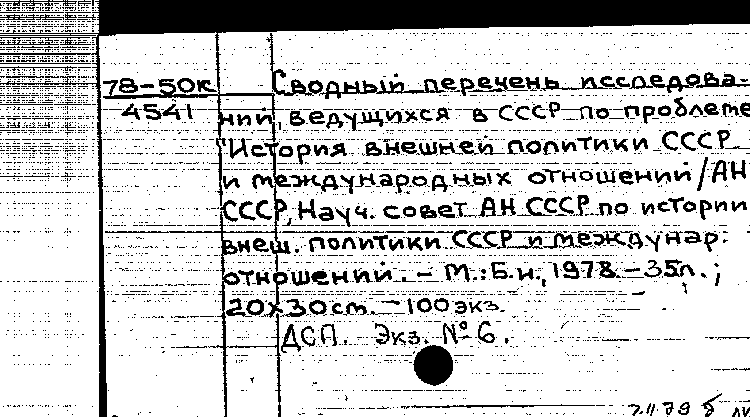 78-50к Сводный перечень исследова-
4541 ний, ведущихся в СССР по проблеме
"История внешней политики СССР
и международных отношений/АН
СССР, Науч. совет АН СССР по истории
внеш. политики СССР и междунар.
отношений. - М.: Б.и., 1978. - 35л.;
20х30cm. - 100 экз.
ДСП. Экз. №6.